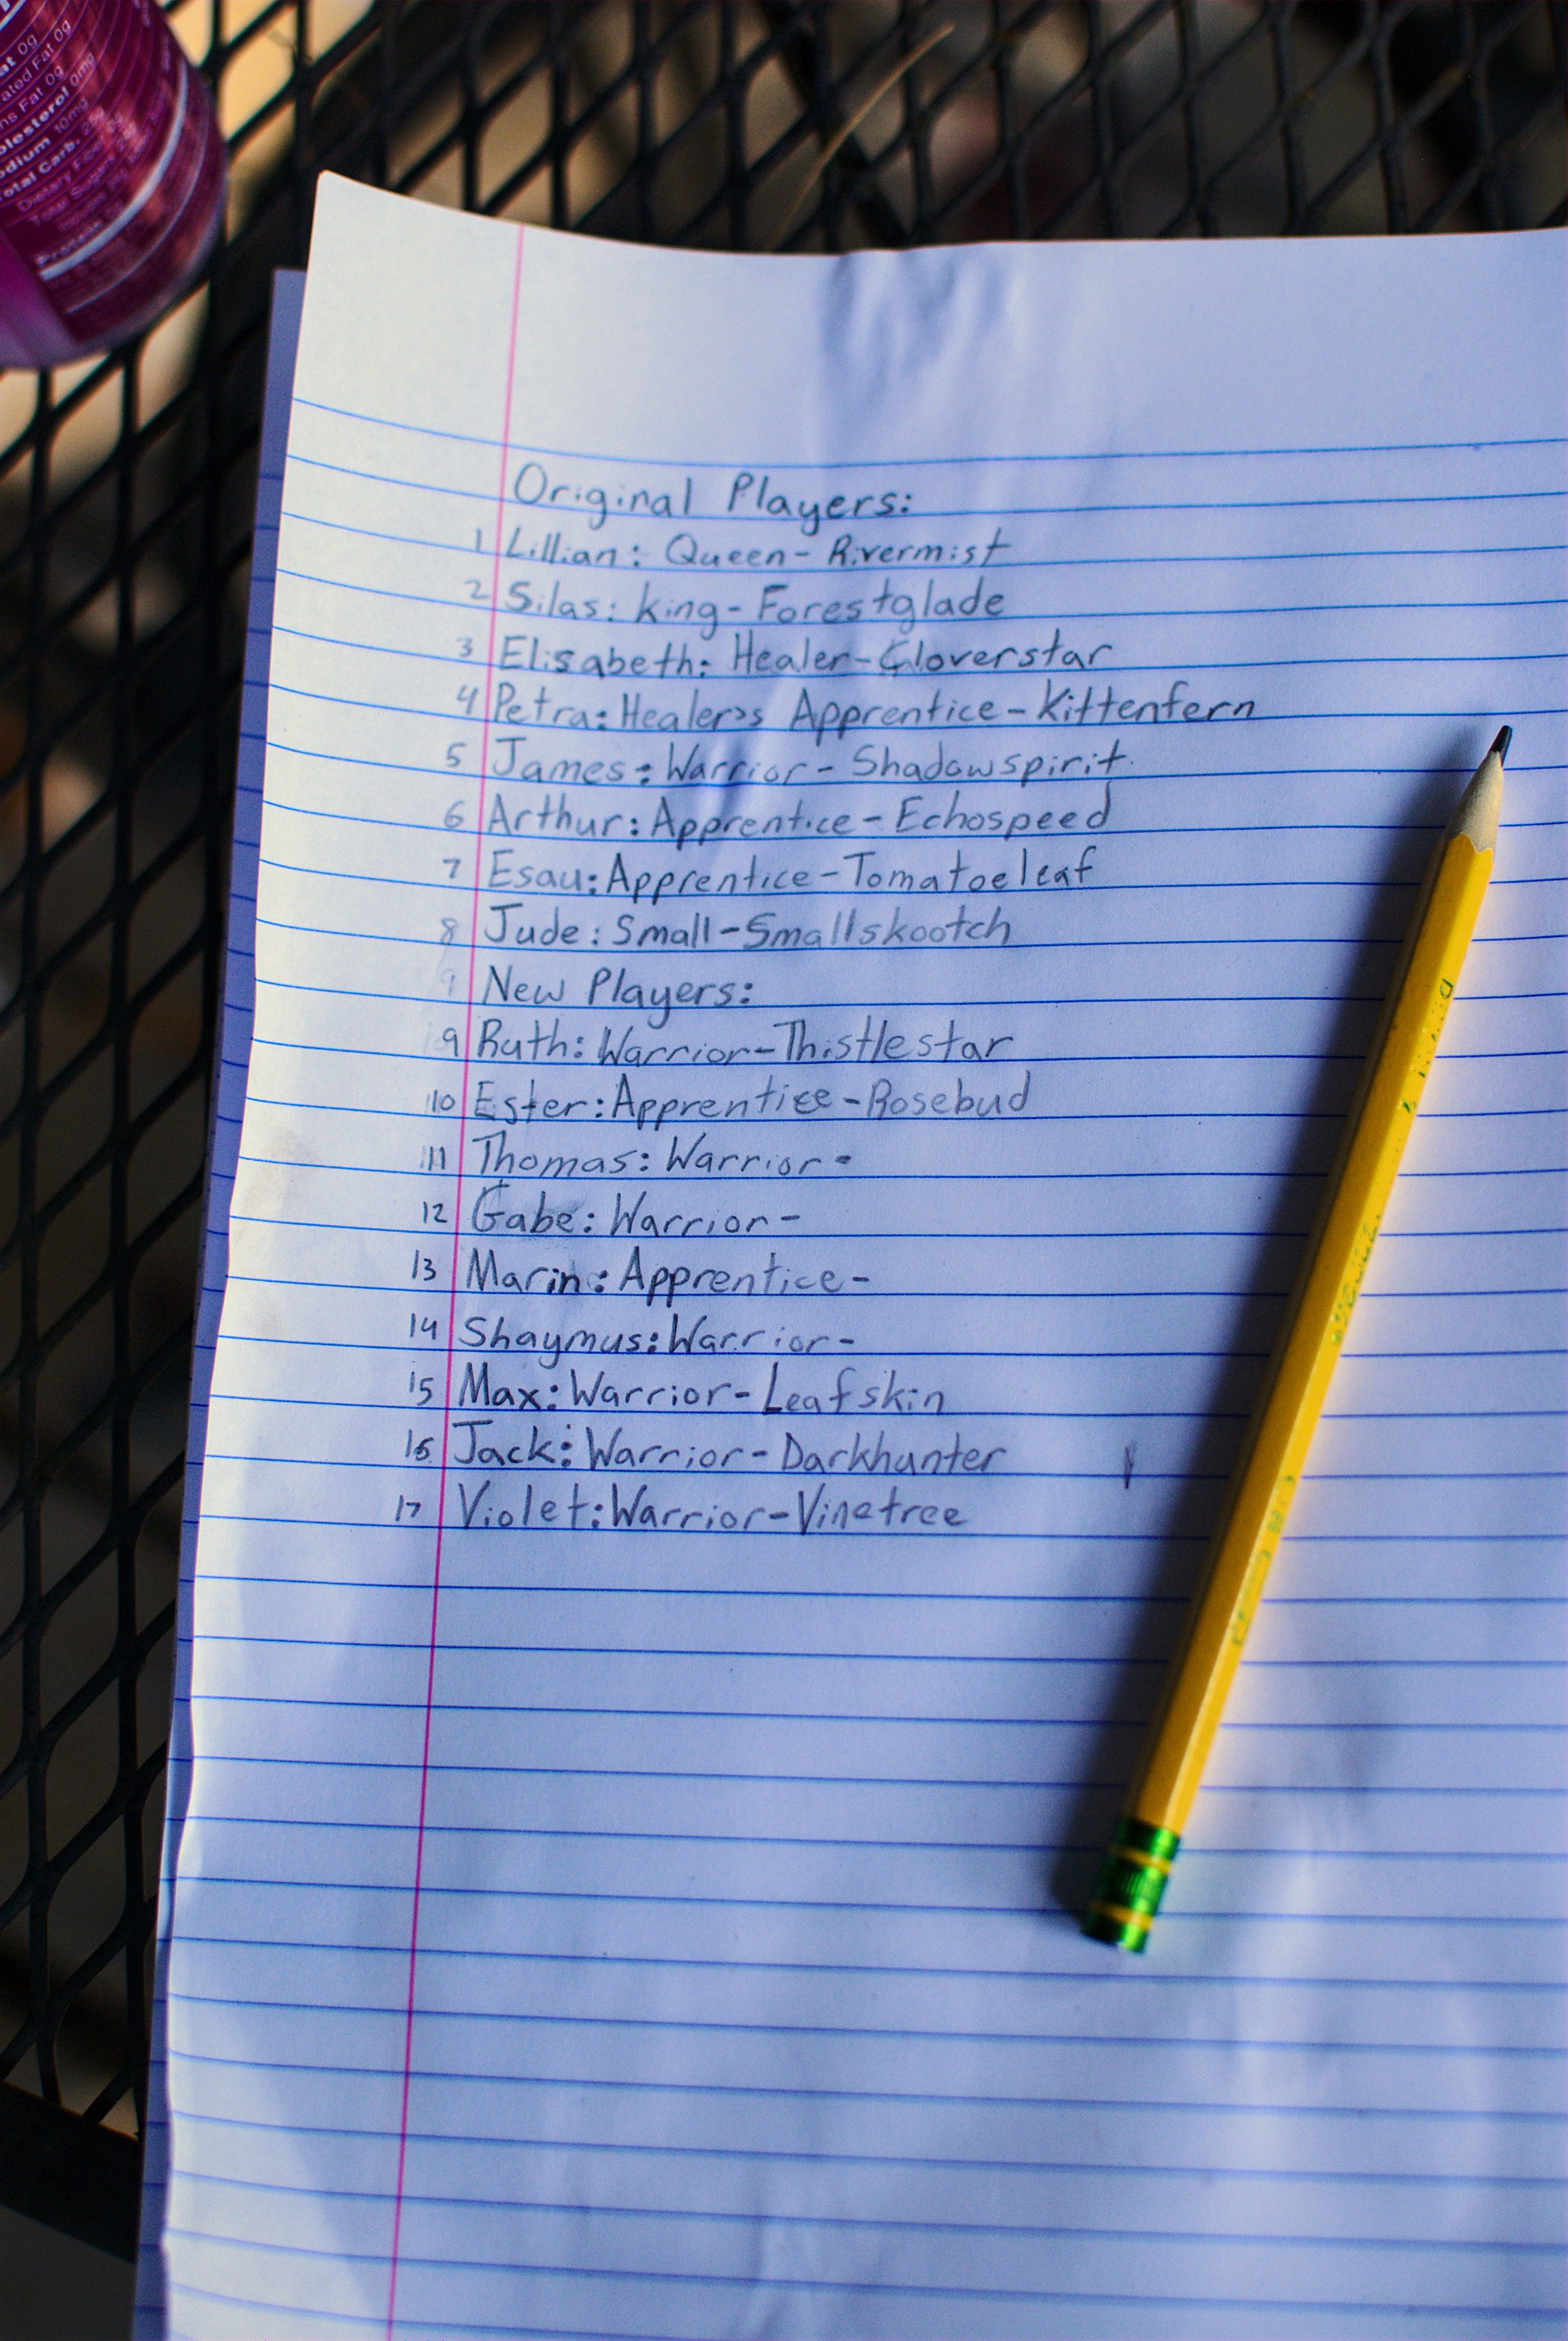 at 0g
ated Fat 0g
ns Fat 0g
olesterol 0mg
odium 10mg
otal Carb.
Dietary
Total
Protein
Original Players:
1 Lillian: Queen- Rivermist
2 Silas: king- Forestglade
3 Elisabeth: Healer-Cloverstar
4 Petra: Healer's Apprentice-Kittenfern
5 James: Warrior- Shadowspirit
6 Arthur: Apprentice-Echospeed
7 Esau: Apprentice-Tomatoeleaf
8 Jude: Small-Smallskootch
9 New Players:
9 Ruth: Warrior-Thistlestar
10 Ester: Apprentice-Rosebud
11 Thomas: Warrior-
12 Gabe: Warrior-
13 Marin: Apprentice-
14 Shaymus: Warrior-
15 Max: Warrior-Leafskin
16 Jack: Warrior-Darkhunter
17 Violet: Warrior-Vinetree